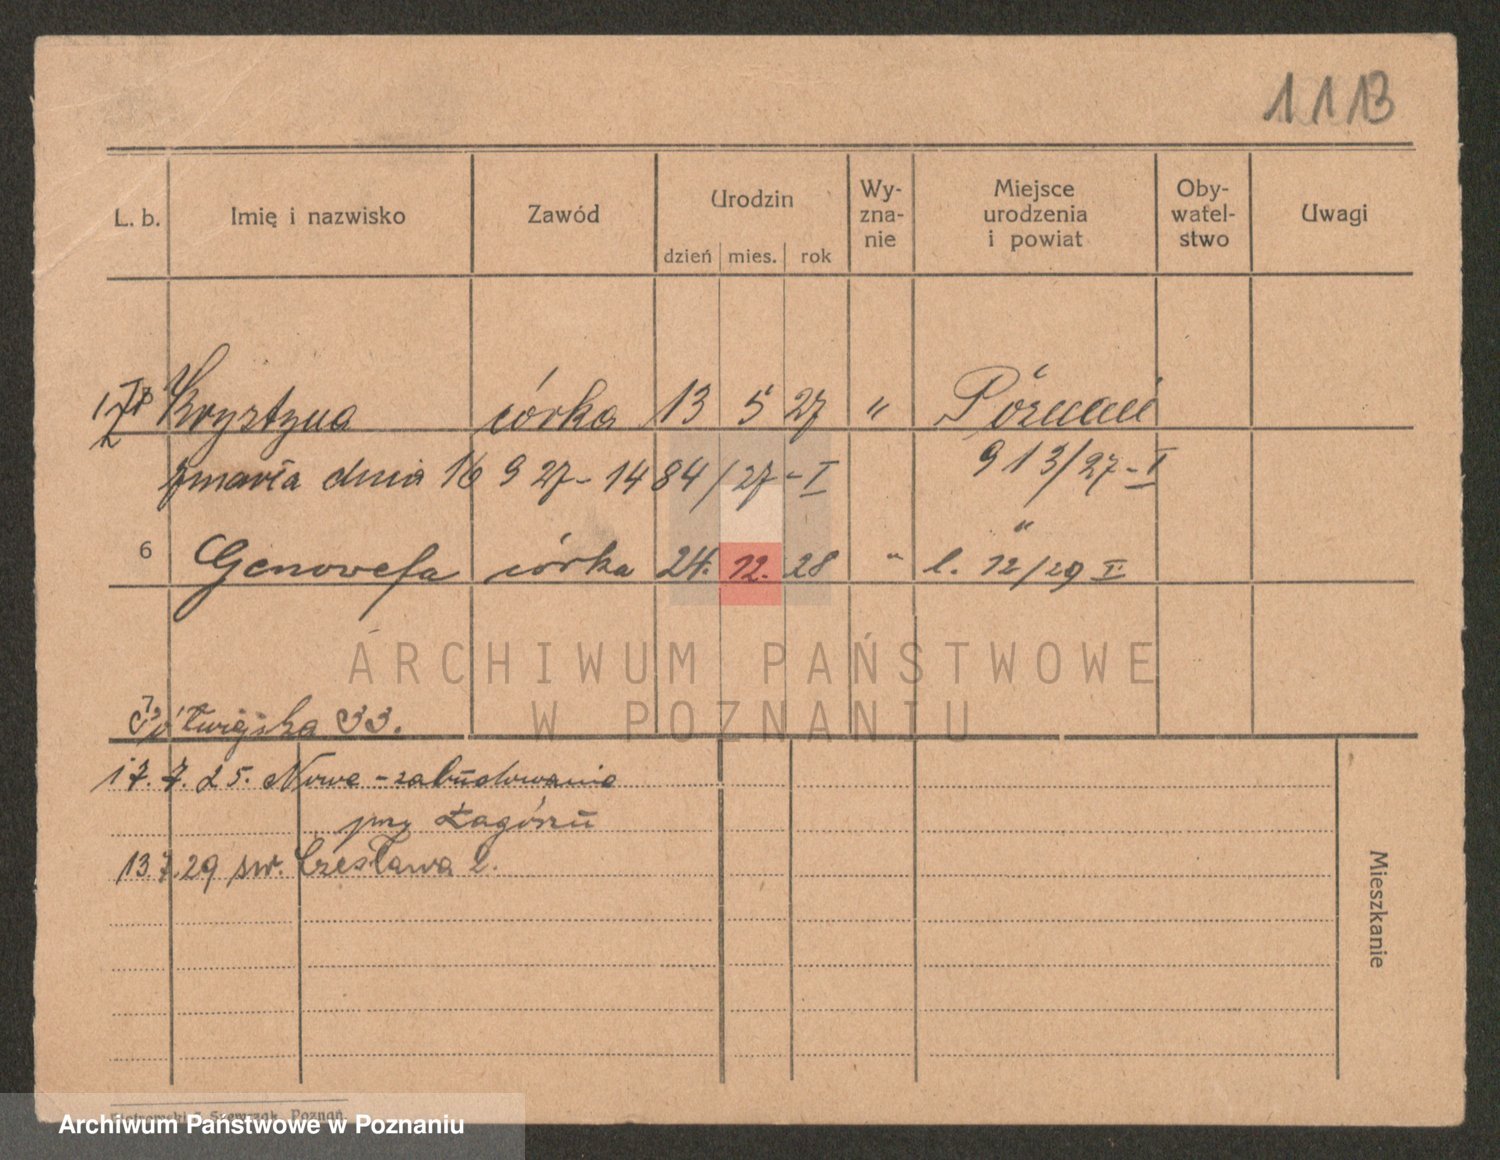 1113
L. b. Imię i nazwisko Zawód Urodzin dzień mies. rok Wy-zna-nie Miejsce urodzenia i powiat Oby-watel-stwo Uwagi
Krystyna córka 13 5 27 " Poznań
zmarła dnia 16 9 27 - 1484/27 - I 913/27 - I
6 Genowefa córka 24. 12. 28 " l. 12/29 I "
ARCHIWUM PAŃSTWOWE
W POZNANIU
Półwiejska 33.
17. 7. 25. Nowe - zabudowania
przy Łagórzu
13.7.29 św. Czesława 2.
Mieszkanie
Piotrowski i Szewczak, Poznań.
Archiwum Państwowe w Poznaniu